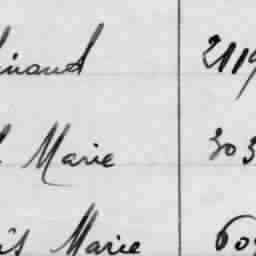 inand 2119
Marie 303
is Marie 60